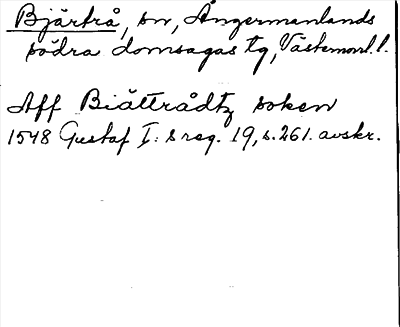 Bjärtrå, sn, Ångermanlands
södra domsagas tg, Västernorrl. l.
Aff Biättrådtz soken
1548 Gustaf I: s reg. 19, s. 261. avskr.